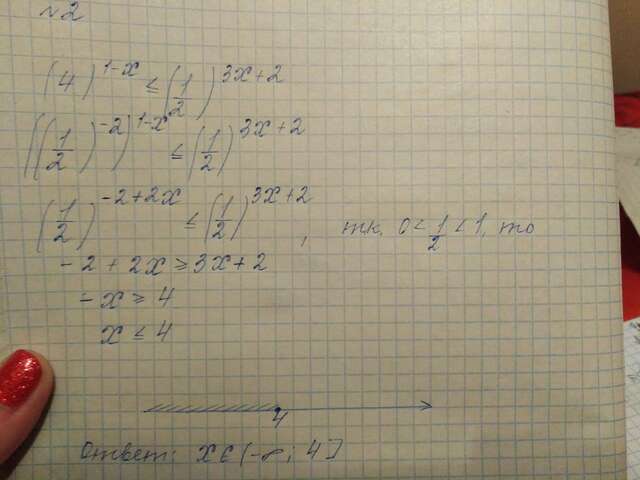 №2
(4)^{1-x} ≤ (1/2)^{3x+2}
((1/2)^{-2})^{1-x} ≤ (1/2)^{3x+2}
(1/2)^{-2+2x} ≤ (1/2)^{3x+2}, т.к. 0 < 1/2 < 1, то
-2 + 2x ≥ 3x + 2
-x ≥ 4
x ≤ 4
4
Ответ: x ∈ (-∞; 4]